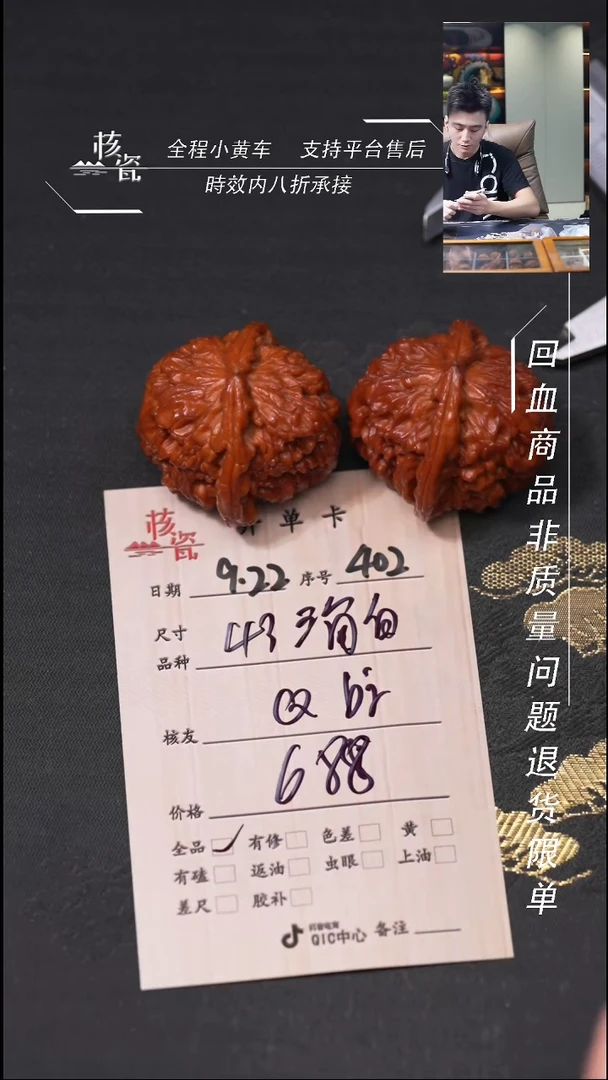 核瓷
全程小黄车 支持平台售后
時效内八折承接
回血商品非质量问题退货限单
核瓷 单卡
日期 9.22 序号 402
尺寸
品种 43
核友
价格 688
全品 有修 色差 黄
有磕 返油 虫眼 上油
差尺 胶补
抖音电商
QIC中心 备注